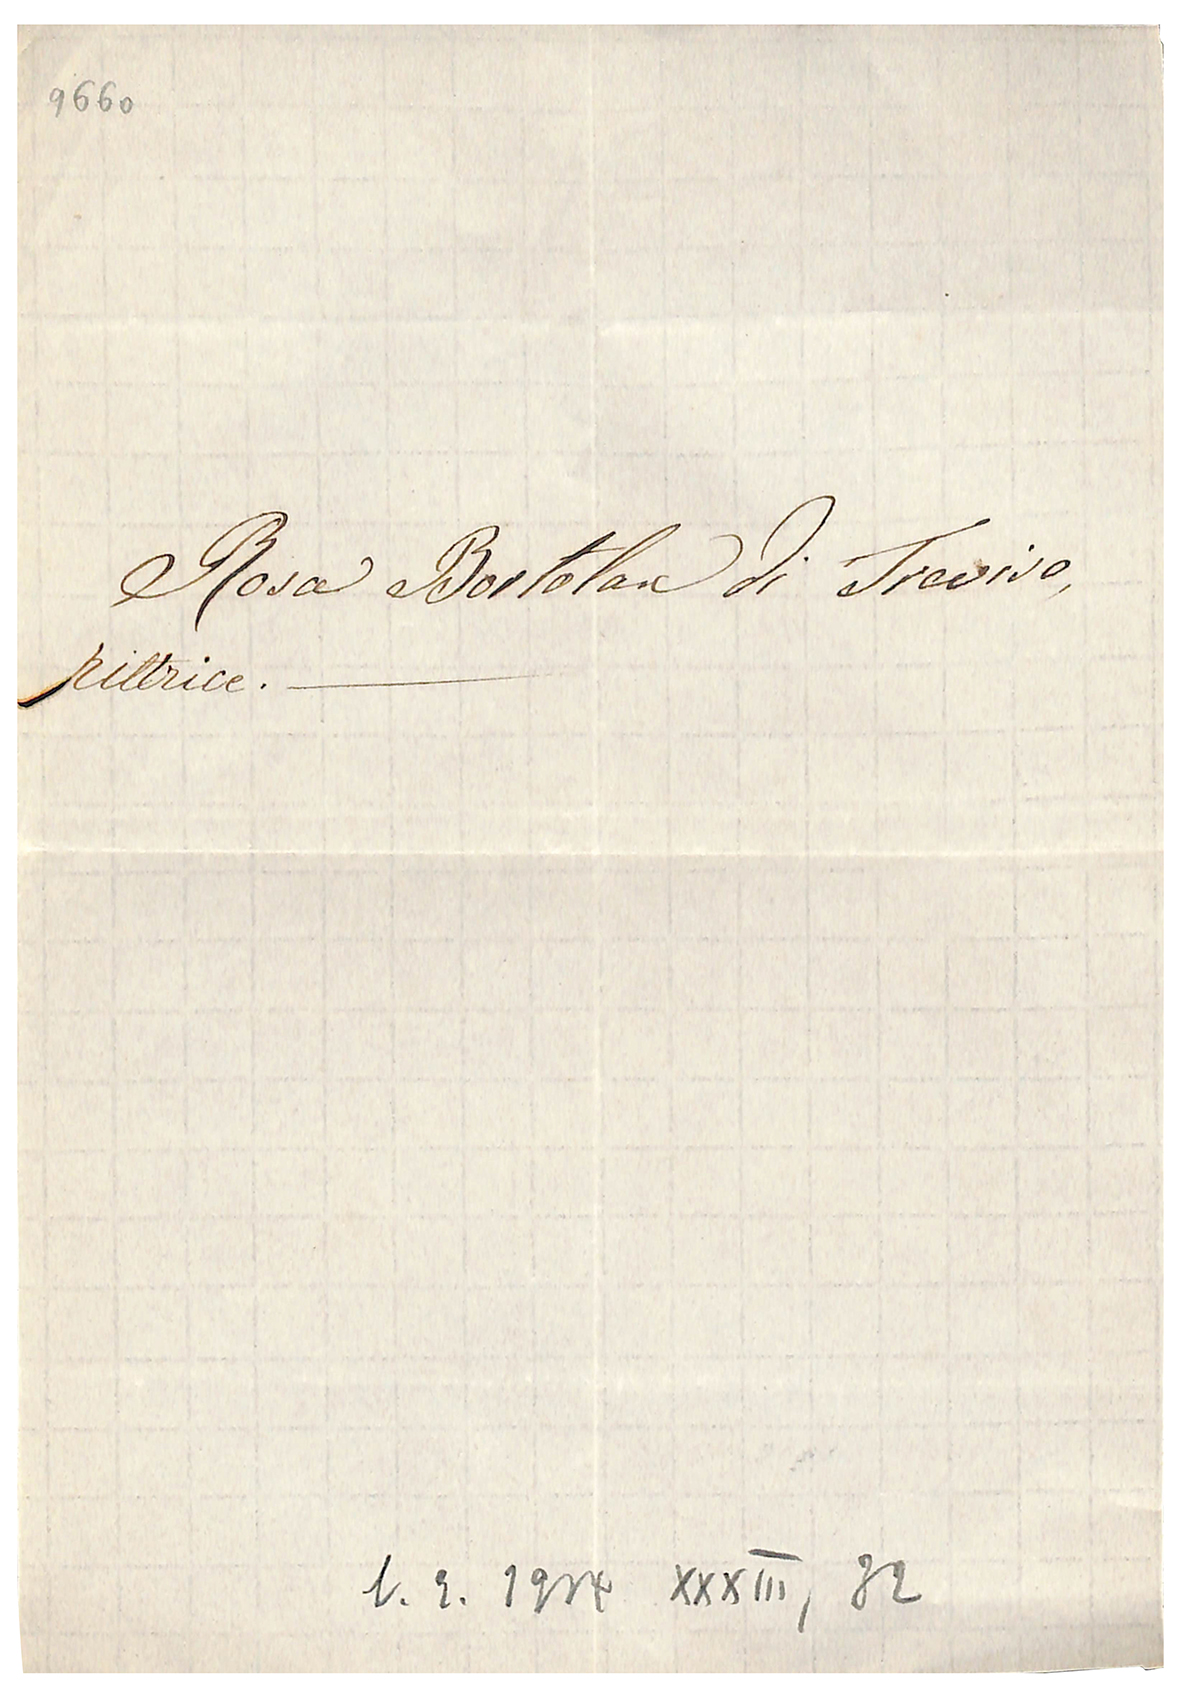 9660
Rosa Bortolan di Treviso,
pittrice.
XXXIII, 32